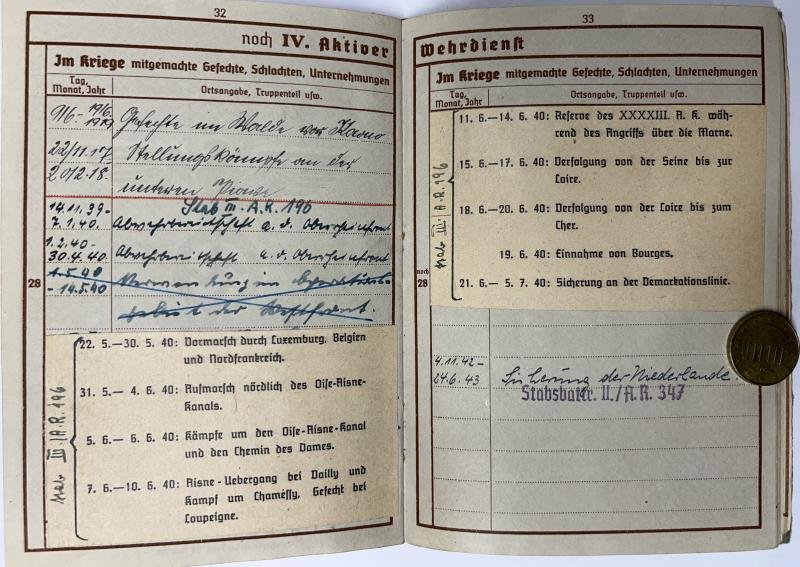 32
noch IV. Aktiver
Im Kriege mitgemachte Gefechte, Schlachten, Unternehmungen
Tag, Monat, Jahr
Ortsangabe, Truppenteil usw.
Gefechte im Walde von
22/11.17
Stellungskämpfe an der
20/12.18.
unteren Piave
Stab III. A.R. 196
14.11.39-
7.1.40.
Abwehrbereitschaft a. d. Oberrheinfront
1.2.40-
30.4.40.
Abwehrbereitschaft a. d. Oberrheinfront
28
1.5.40
- 14.5.40
Verwendung im Operations-
gebiet der Westfront.
Stab III./A.R. 196
22. 5.—30. 5. 40: Vormarsch durch Luxemburg, Belgien
und Nordfrankreich.
31. 5.— 4. 6. 40: Aufmarsch nördlich des Oise-Aisne-
Kanals.
5. 6.— 6. 6. 40: Kämpfe um den Oise-Aisne-Kanal
und den Chemin des Dames.
7. 6.—10. 6. 40: Aisne-Uebergang bei Vailly und
Kampf um Chaméssy, Gefecht bei
Loupeigne.
33
Wehrdienst
Im Kriege mitgemachte Gefechte, Schlachten, Unternehmungen
Tag, Monat, Jahr
Ortsangabe, Truppenteil usw.
Stab III./A.R. 196
11. 6.—14. 6. 40: Reserve des XXXXIII. A. K. wäh-
rend des Angriffs über die Marne.
15. 6.—17. 6. 40: Verfolgung von der Seine bis zur
Loire.
18. 6.—20. 6. 40: Verfolgung von der Loire bis zum
Cher.
19. 6. 40: Einnahme von Bourges.
noch
28
21. 6.— 5. 7. 40: Sicherung an der Demarkationslinie.
4.11.42-
24.6.43
Sicherung der Niederlande.
Stabsbattr. II./A.R. 347